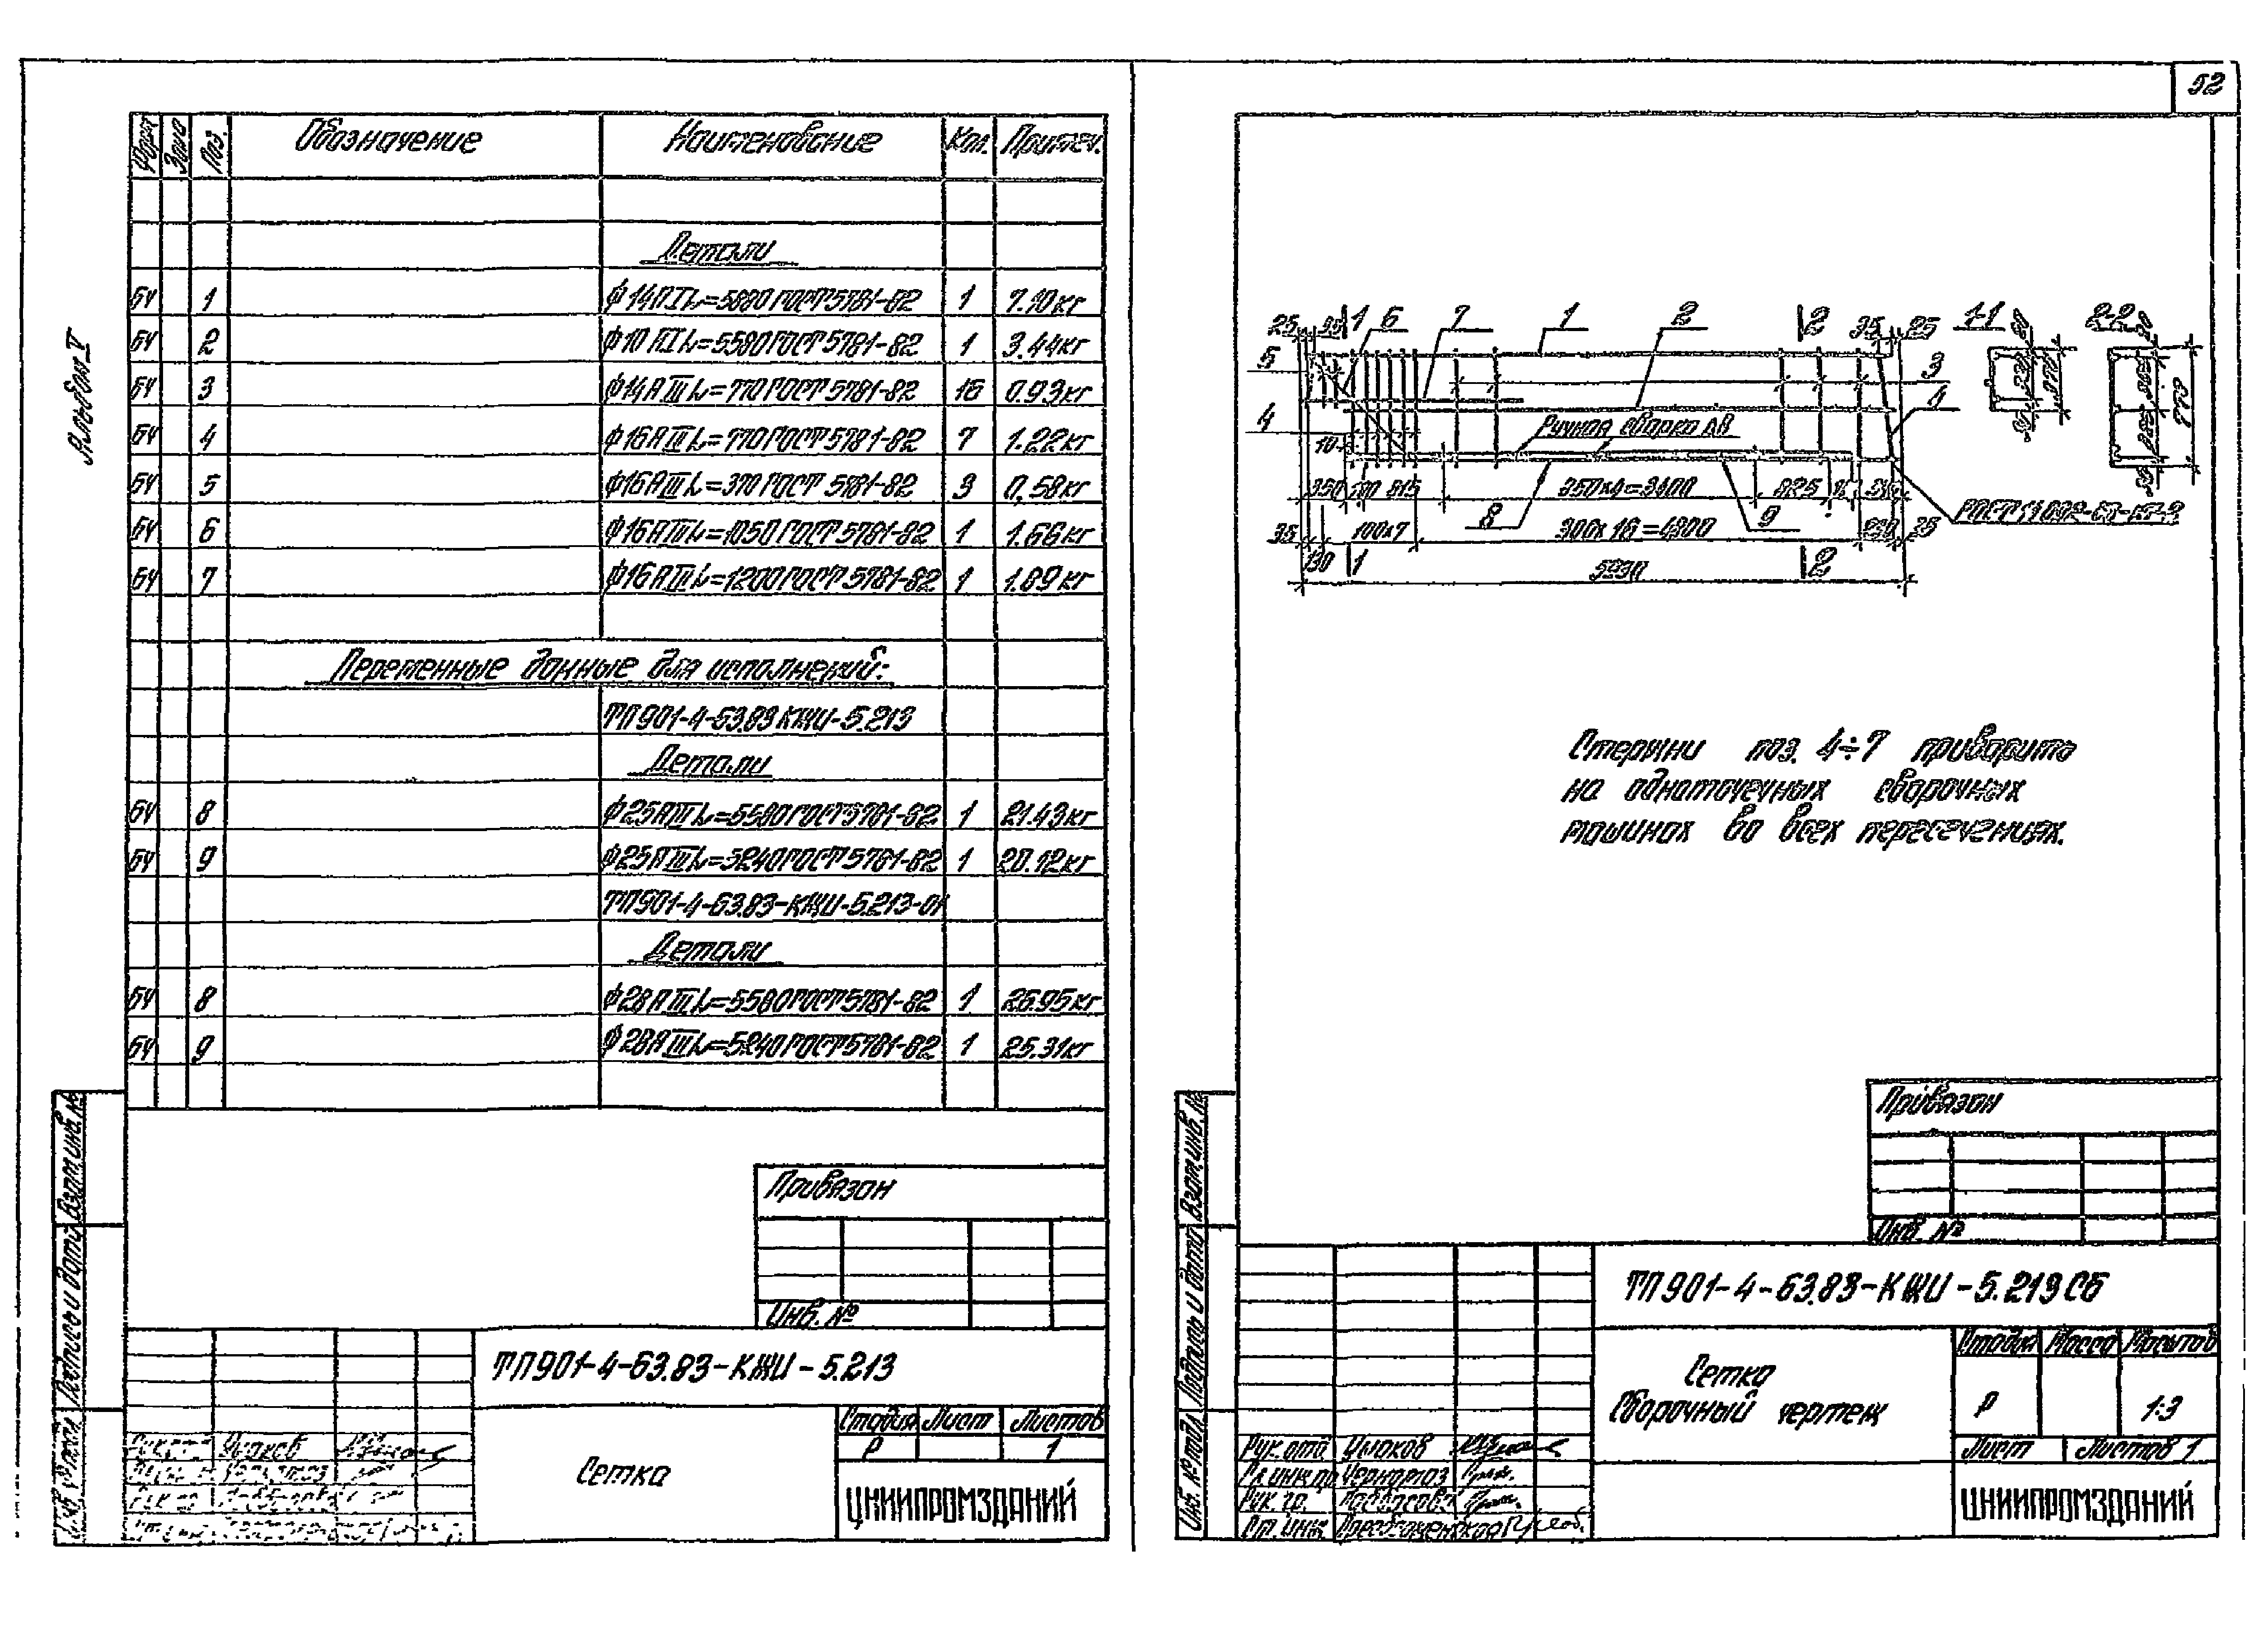 52
Альбом V
Форм. Зона Поз. Обозначение Наименование Кол. Примеч.
Детали
БЧ 1 ф14АI L=5880 ГОСТ 5781-82 1 7.10кг
БЧ 2 ф10АI L=5580 ГОСТ 5781-82 1 3.44кг
БЧ 3 ф14АIII L=770 ГОСТ 5781-82 16 0.93кг
БЧ 4 ф16АIII L=770 ГОСТ 5781-82 7 1.22кг
БЧ 5 ф16АIII L=370 ГОСТ 5781-82 3 0.58кг
БЧ 6 ф16АIII L=1050 ГОСТ 5781-82 1 1.66кг
БЧ 7 ф16АIII L=1200 ГОСТ 5781-82 1 1.89кг
Переменные данные для исполнений:
ТП901-4-63.83 КЖИ-5.213
Детали
БЧ 8 ф25АIII L=5580 ГОСТ 5781-82 1 21.43кг
БЧ 9 ф25АIII L=5240 ГОСТ 5781-82 1 20.12кг
ТП901-4-63.83-КЖИ-5.213-01
Детали
БЧ 8 ф28АIII L=5580 ГОСТ 5781-82 1 26.95кг
БЧ 9 ф28АIII L=5240 ГОСТ 5781-82 1 25.31кг
Привязан
Инв. №
ТП901-4-63.83-КЖИ-5.213
Сетка
Стадия Лист Листов
Р 1
ЦНИИПРОМЗДАНИЙ
Взам.инв.№
Подпись и дата
25 35 1 6 7 1 2 2 35 25 1-1 2-2
5 3
4 4
Ручная сварка дв.
10
350 100 815 850х4=3400 825
8 9
35 100х7 300х16=4800 35
130 1 5930 2
Стержни поз. 4÷7 приварить
на одноточечных сварочных
машинах во всех пересечениях.
Привязан
Инв. №
ТП901-4-63.83-КЖИ-5.213СБ
Сетка
Сборочный чертеж
Стадия Масса Масштаб
Р 1:3
Лист Листов 1
ЦНИИПРОМЗДАНИЙ
Рук.отд.
Гл.инж.пр Чернотаз
Рук. гр.
Ст. инж. Преображенская
Взам.инв.№
Подпись и дата
Инв. № подл.